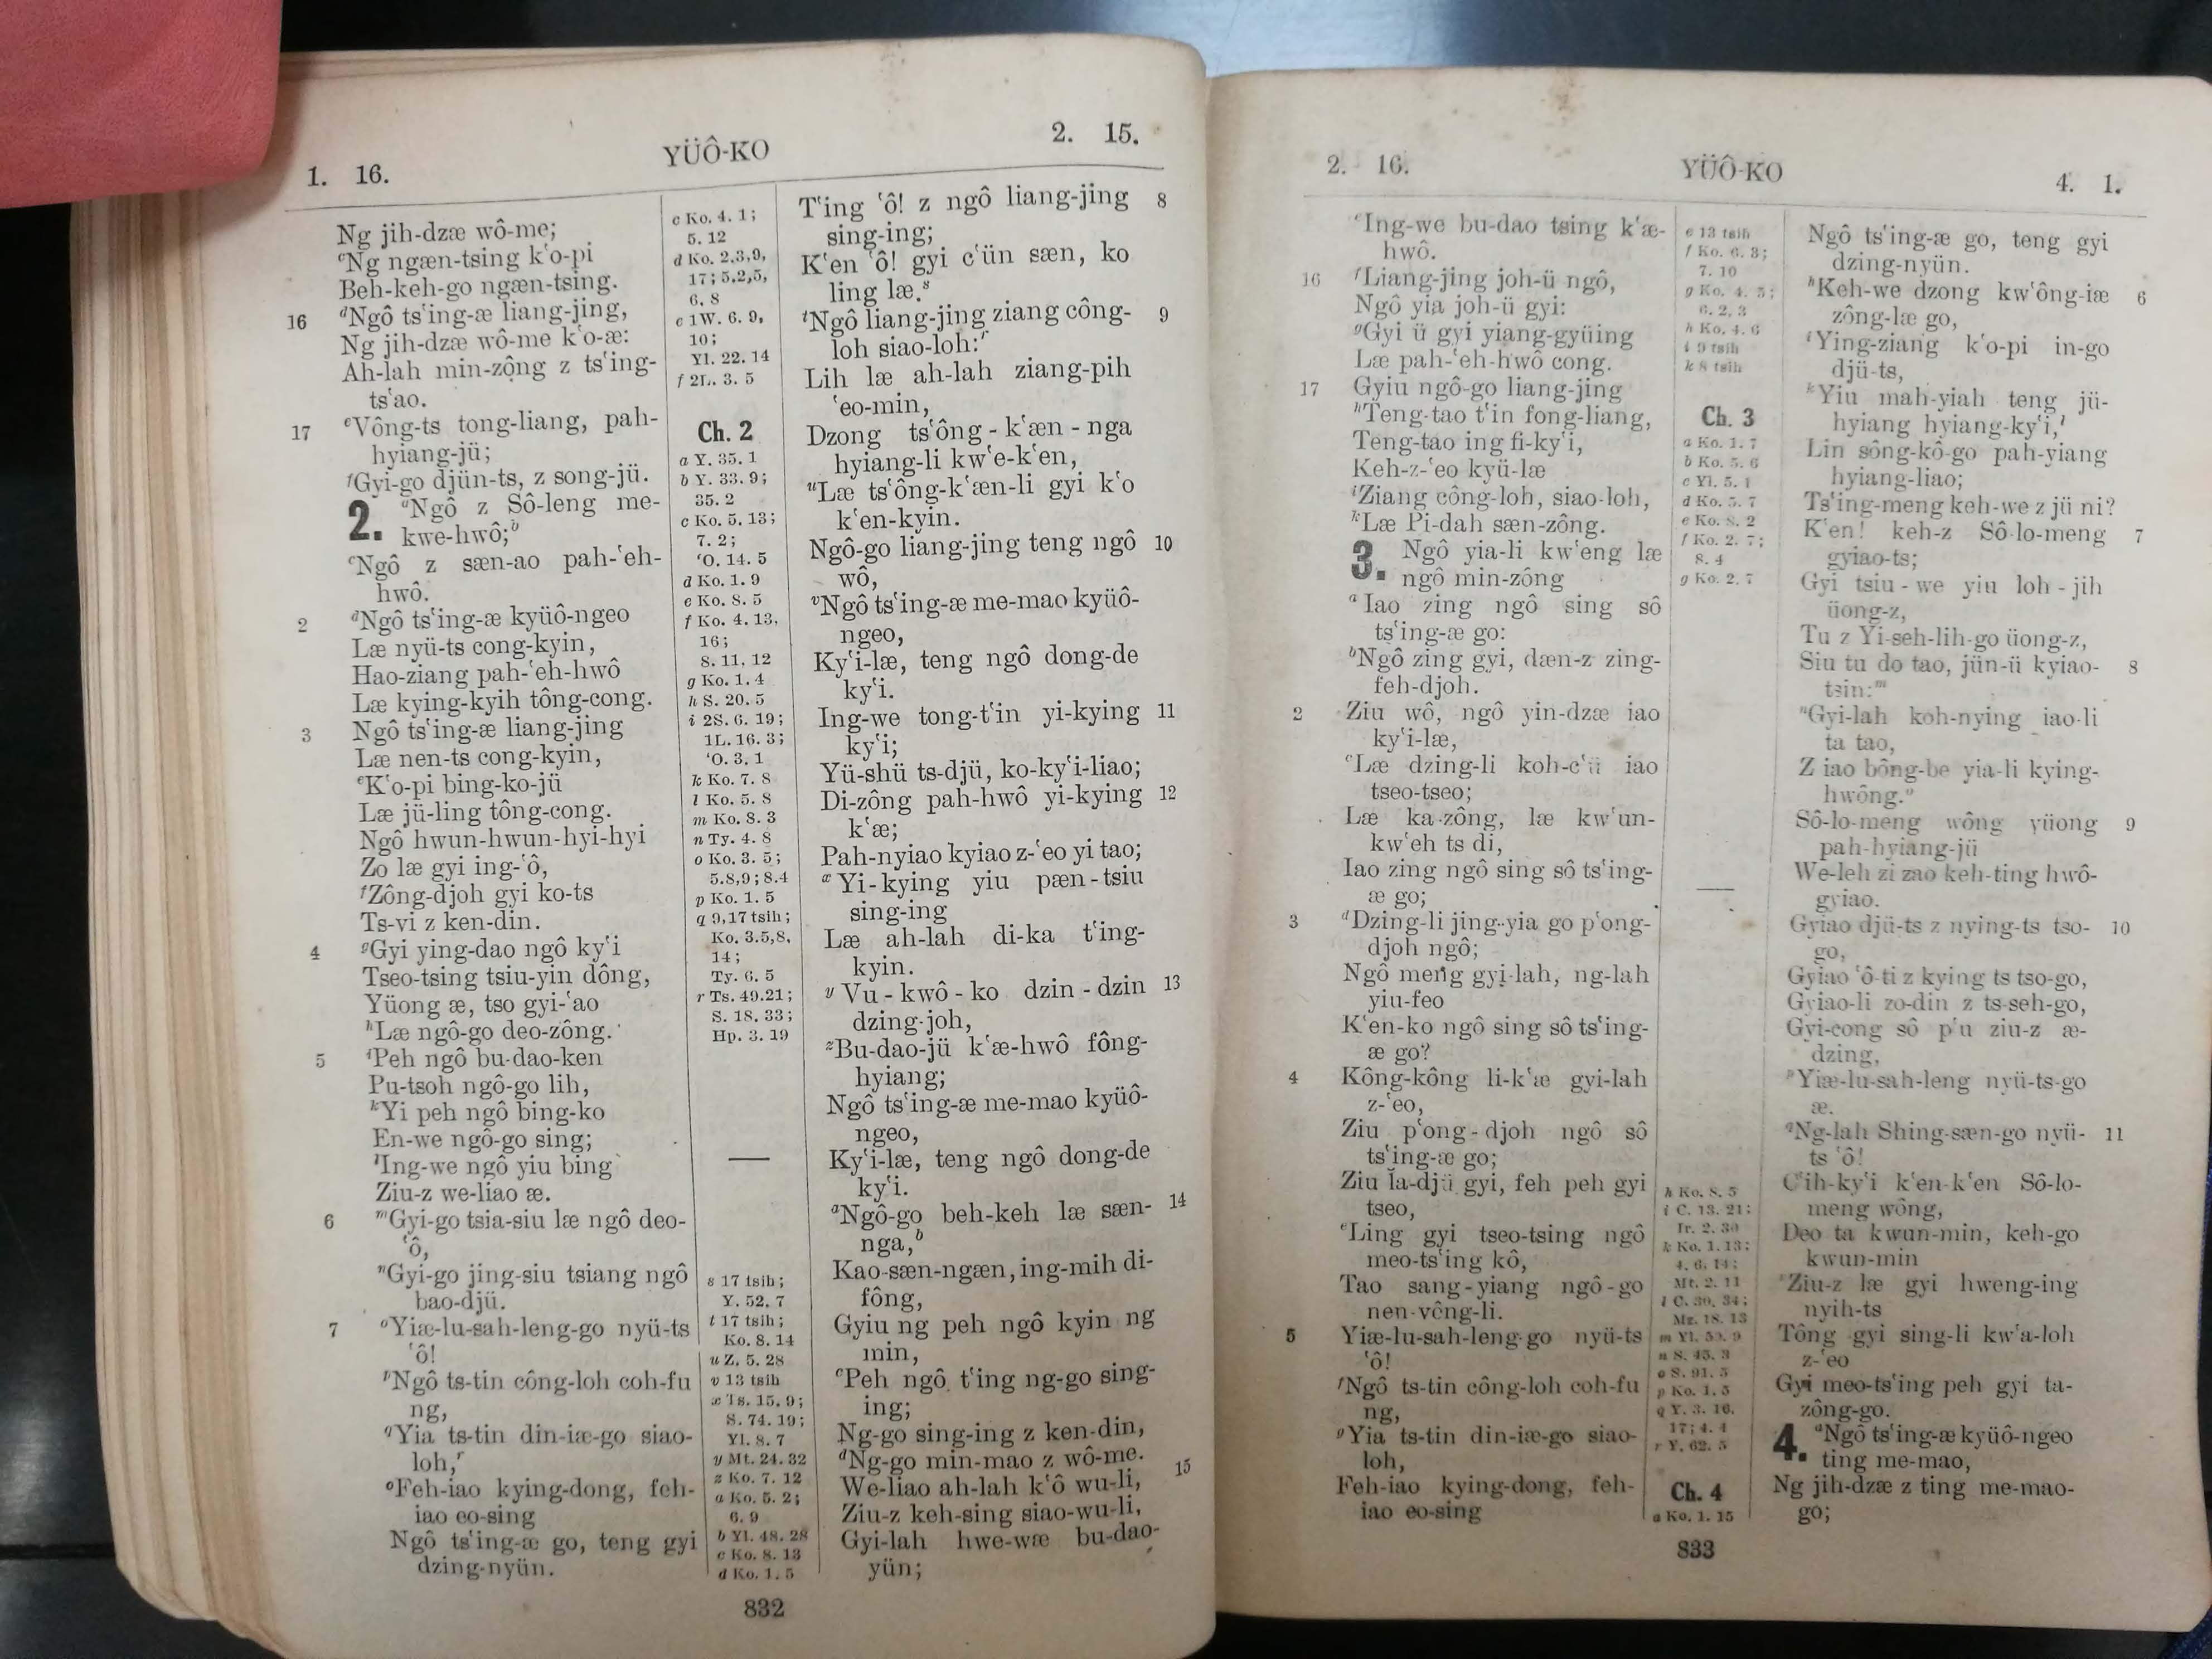 1. 16.
YÜÔ-KO
2. 15.
Ng jih-dzæ wô-me;
cNg ngæn-tsing k‘o-pi
Beh-keh-go ngæn-tsing.
16 dNgô ts‘ing-æ liang-jing,
Ng jih-dzæ wô-me k‘o-æ:
Ah-lah min-zông z ts‘ing-
ts‘ao.
17 eVông-ts tong-liang, pah-
hyiang-jü;
fGyi-go djün-ts, z song-jü.
2. aNgô z Sô-leng me-
kwe-hwô;b
cNgô z sæn-ao pah-‘eh-
hwô.
2 dNgô ts‘ing-æ kyüô-ngeo
Læ nyü-ts cong-kyin,
Hao-ziang pah-‘eh-hwô
Læ kying-kyih tông-cong.
3 Ngô ts‘ing-æ liang-jing
Læ nen-ts cong-kyin,
eK‘o-pi bing-ko-jü
Læ jü-ling tông-cong.
Ngô hwun-hwun-hyi-hyi
Zo læ gyi ing-‘ô,
fZông-djoh gyi ko-ts
Ts-vi z ken-din.
4 gGyi ying-dao ngô ky‘i
Tseo-tsing tsiu-yin dông,
Yüong æ, tso gyi-‘ao
hLæ ngô-go deo-zông.
5 iPeh ngô bu-dao-ken
Pu-tsoh ngô-go lih,
kYi peh ngô bing-ko
En-we ngô-go sing;
lIng-we ngô yiu bing
Ziu-z we-liao æ.
6 mGyi-go tsia-siu læ ngô deo-
‘ô,
nGyi-go jing-siu tsiang ngô
bao-djü.
7 oYiæ-lu-sah-leng-go nyü-ts
‘ô!
pNgô ts-tin công-loh coh-fu
ng,
qYia ts-tin din-iæ-go siao-
loh,r
oFeh-iao kying-dong, feh-
iao eo-sing
Ngô ts‘ing-æ go, teng gyi
dzing-nyün.
c Ko. 4. 1;
5. 12
d Ko. 2,3,9,
17; 5,2,5,
6. 8
e 1W. 6. 9,
10;
Yl. 22. 14
f 2L. 3. 5
Ch. 2
a Y. 35. 1
b Y. 33. 9;
35. 2
c Ko. 5. 13;
7. 2;
‘O. 14. 5
d Ko. 1. 9
e Ko. 8. 5
f Ko. 4. 13,
16;
8. 11, 12
g Ko. 1. 4
h S. 20. 5
i 2S. 6. 19;
1L. 16. 3;
‘O. 3. 1
k Ko. 7. 8
l Ko. 5. 8
m Ko. 8. 3
n Ty. 4. 8
o Ko. 3. 5;
5.8,9; 8.4
p Ko. 1. 5
q 9,17 tsih;
Ko. 3.5,8,
14;
Ty. 6. 5
r Ts. 49.21;
S. 18. 33;
Hp. 3. 19
s 17 tsih;
Y. 52. 7
t 17 tsih;
Ko. 8. 14
u Z. 5. 28
v 13 tsih
x Ts. 15. 9;
S. 74. 19;
Yl. 8. 7
y Mt. 24. 32
z Ko. 7. 12
a Ko. 5. 2;
6. 9
b Yl. 48. 28
c Ko. 8. 13
d Ko. 1. 5
T‘ing ‘ô! z ngô liang-jing 8
sing-ing;
K‘en ‘ô! gyi c‘ün sæn, ko
ling læ.s
tNgô liang-jing ziang công- 9
loh siao-loh:r
Lih læ ah-lah ziang-pih
‘eo-min,
Dzong ts‘ông-k‘æn-nga
hyiang-li kw‘e-k‘en,
uLæ ts‘ông-k‘æn-li gyi k‘o
k‘en-kyin.
Ngô-go liang-jing teng ngô 10
wô,
vNgô ts‘ing-æ me-mao kyüô-
ngeo,
Ky‘i-læ, teng ngô dong-de
ky‘i.
Ing-we tong-t‘in yi-kying 11
ky‘i;
Yü-shü ts-djü, ko-ky‘i-liao;
Di-zông pah-hwô yi-kying 12
k‘æ;
Pah-nyiao kyiao z-‘eo yi tao;
xYi-kying yiu pæn-tsiu
sing-ing
Læ ah-lah di-ka t‘ing-
kyin.
yVu-kwô-ko dzin-dzin 13
dzing-joh,
zBu-dao-jü k‘æ-hwô fông-
hyiang;
Ngô ts‘ing-æ me-mao kyüô-
ngeo,
Ky‘i-læ, teng ngô dong-de
ky‘i.
aNgô-go beh-keh læ sæn- 14
nga,b
Kao-sæn-ngæn, ing-mih di-
fông,
Gyiu ng peh ngô kyin ng
min,
cPeh ngô t‘ing ng-go sing-
ing;
Ng-go sing-ing z ken-din,
dNg-go min-mao z wô-me.
We-liao ah-lah k‘ô wu-li, 15
Ziu-z keh-sing siao-wu-li,
Gyi-lah hwe-wæ bu-dao-
yün;
832
2. 16.
YÜÔ-KO
4. 1.
eIng-we bu-dao tsing k‘æ-
hwô.
16 fLiang-jing joh-ü ngô,
Ngô yia joh-ü gyi:
gGyi ü gyi yiang-gyüing
Læ pah-‘eh-hwô cong.
17 Gyiu ngô-go liang-jing
hTeng-tao t‘in fong-liang,
Teng-tao ing fi-ky‘i,
Keh-z-‘eo kyü-læ
iZiang công-loh, siao-loh,
kLæ Pi-dah sæn-zông.
3. Ngô yia-li kw‘eng læ
ngô min-zông
aIao zing ngô sing sô
ts‘ing-æ go:
bNgô zing gyi, dæn-z zing-
feh-djoh.
2 Ziu wô, ngô yin-dzæ iao
ky‘i-læ,
cLæ dzing-li koh-c‘ü iao
tseo-tseo;
Læ ka-zông, læ kw‘un-
kw‘eh ts di,
Iao zing ngô sing sô ts‘ing-
æ go;
3 dDzing-li jing-yia go p‘ong-
djoh ngô;
Ngô meng gyi-lah, ng-lah
yiu-feo
K‘en-ko ngô sing sô ts‘ing-
æ go?
4 Kông-kông li-k‘æ gyi-lah
z-‘eo,
Ziu p‘ong-djoh ngô sô
ts‘ing-æ go;
Ziu la-djü gyi, feh peh gyi
tseo,
eLing gyi tseo-tsing ngô
meo-ts‘ing kô,
Tao sang-yiang ngô-go
nen-vông-li.
5 Yiæ-lu-sah-leng-go nyü-ts
‘ô!
fNgô ts-tin công-loh coh-fu
ng,
gYia ts-tin din-iæ-go siao-
loh,
Feh-iao kying-dong, feh-
iao eo-sing
e 13 tsih
f Ko. 6. 3;
7. 10
g Ko. 4. 5;
6. 2, 3
h Ko. 4. 6
i 9 tsih
k 8 tsih
Ch. 3
a Ko. 1. 7
b Ko. 5. 6
c Yl. 5. 1
d Ko. 5. 7
e Ko. 8. 2
f Ko. 2. 7;
8. 4
g Ko. 2. 7
h Ko. 8. 5
i C. 13. 21;
Ir. 2. 30
k Ko. 1. 13;
4. 6, 14;
Mt. 2. 11
l C. 30. 34;
S. 45. 3
o S. 91. 5
p Ko. 1. 5
q Y. 3. 16,
17; 4. 4
r Y. 62. 5
Ch. 4
a Ko. 1. 15
Ngô ts‘ing-æ go, teng gyi
dzing-nyün.
hKeh-we dzong kw‘ông-iæ 6
zông-læ go,
iYing-ziang k‘o-pi in-go
djü-ts,
kYiu mah-yiah teng jü-
hyiang hyiang-ky‘i,l
Lin sông-kô-go pah-yiang
hyiang-liao;
Ts‘ing-meng keh-we z jü ni?
K‘en! keh-z Sô-lo-meng 7
gyiao-ts;
Gyi tsiu-we yiu loh-jih
üong-z,
Tu z Yi-seh-lih-go üong-z,
Siu tu do tao, jün-ü kyiao- 8
tsin:m
nGyi-lah koh-nying iao-li
ta tao,
Z iao bông-be yia-li kying-
hwông.o
Sô-lo-meng wông yüong 9
pah-hyiang-jü
We-leh zi zao keh-ting hwô-
gyiao.
Gyiao djü-ts z nying-ts tso- 10
go,
Gyiao ‘ô-ti z kying ts tso-go,
Gyiao-li zo-din z ts-seh-go,
Gyi-cong sô p‘u ziu-z æ-
dzing,
pYiæ-lu-sah-leng nyü-ts-go
æ.
qNg-lah Shing-sæn-go nyü- 11
ts ‘ô!
C‘ih-ky‘i k‘en-k‘en Sô-lo-
meng wông,
Deo ta kwun-min, keh-go
kwun-min
rZiu-z læ gyi hweng-ing
nyih-ts
Tông gyi sing-li kw‘a-loh
z-‘eo
Gyi meo-ts‘ing peh gyi ta-
zông-go.
4. aNgô ts‘ing-æ kyüô-ngeo
ting me-mao,
Ng jih-dzæ z ting me-mao-
go;
833